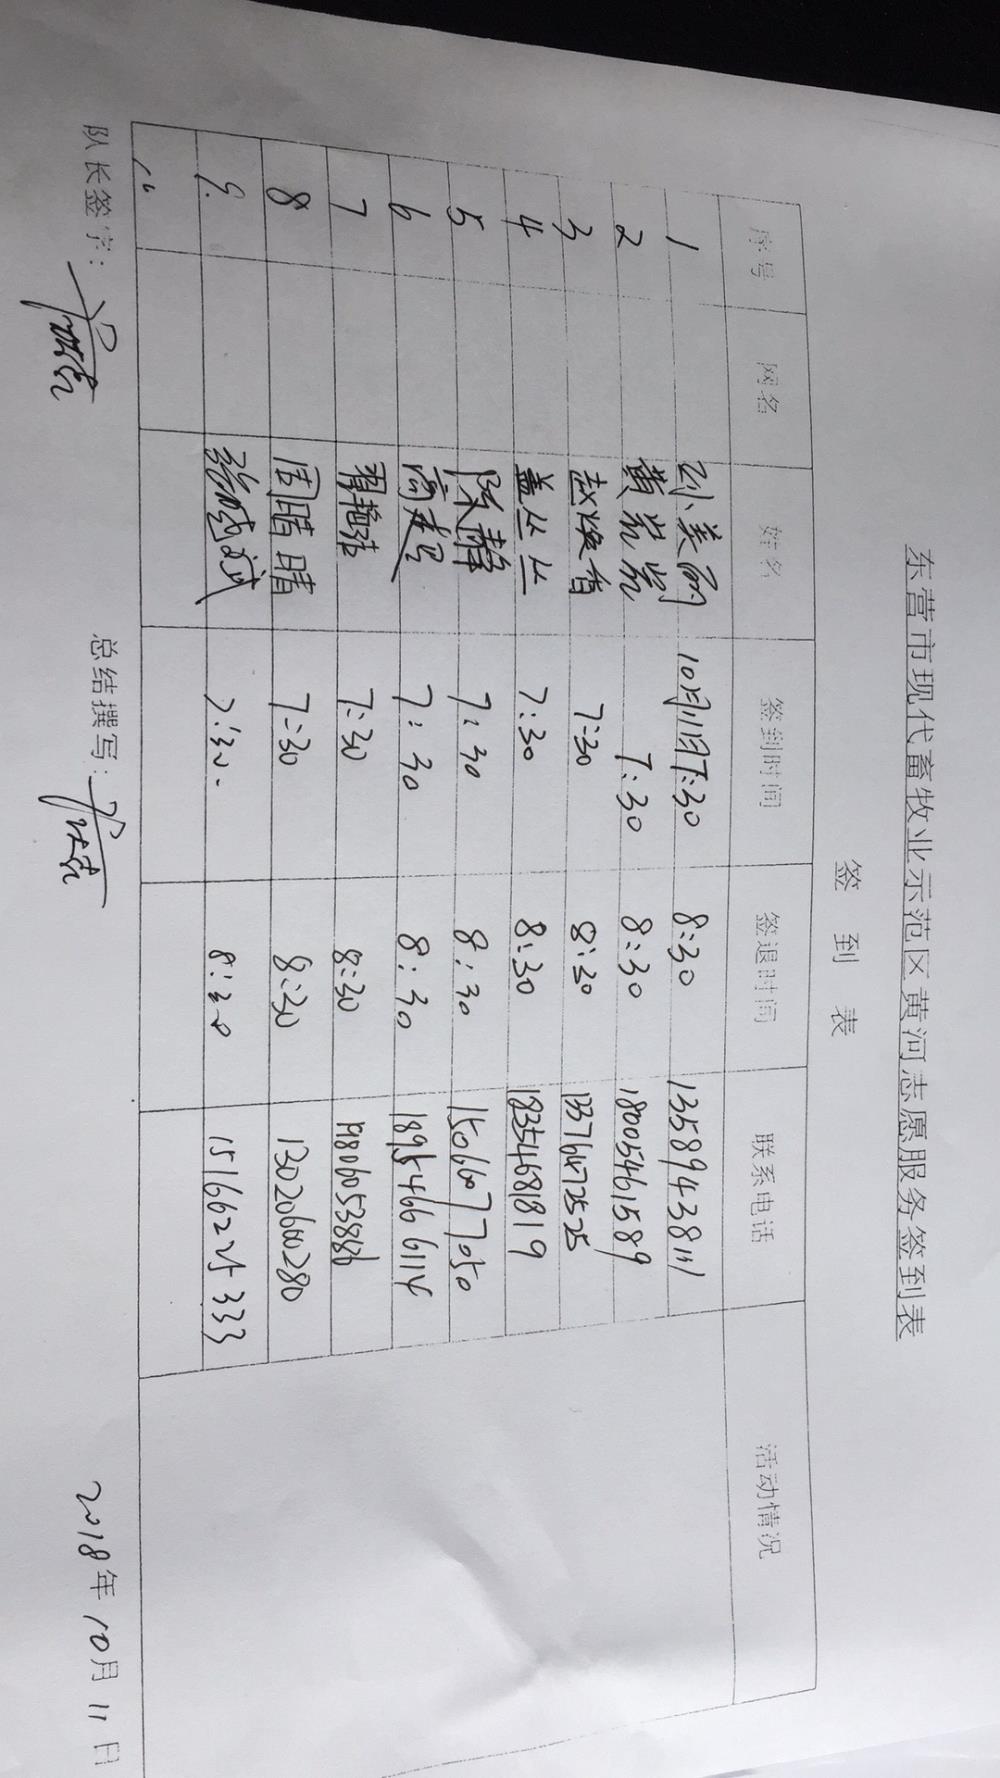 东营市现代畜牧业示范区黄河志愿服务签到表
签 到 表
序号 网名 姓名 签到时间 签退时间 联系电话 活动情况
1 孙美丽 10月11日7:30 8:30 13589438111
2 黄岩岩 7:30 8:30 18005461589
3 赵焕香 7:30 8:30 133716472525
4 盖丛丛 7:30 8:30 18354681819
5 陈静 7:30 8:30 15066077050
6 高建星 7:30 8:30 18954666114
7 胥艳洁 7:30 8:30 19806053886
8 周晴晴 7:30 8:30 13020600280
9. 张斌 7:30. 8:30 15166225333
10
队长签字: 总结撰写: 2018年10月11日